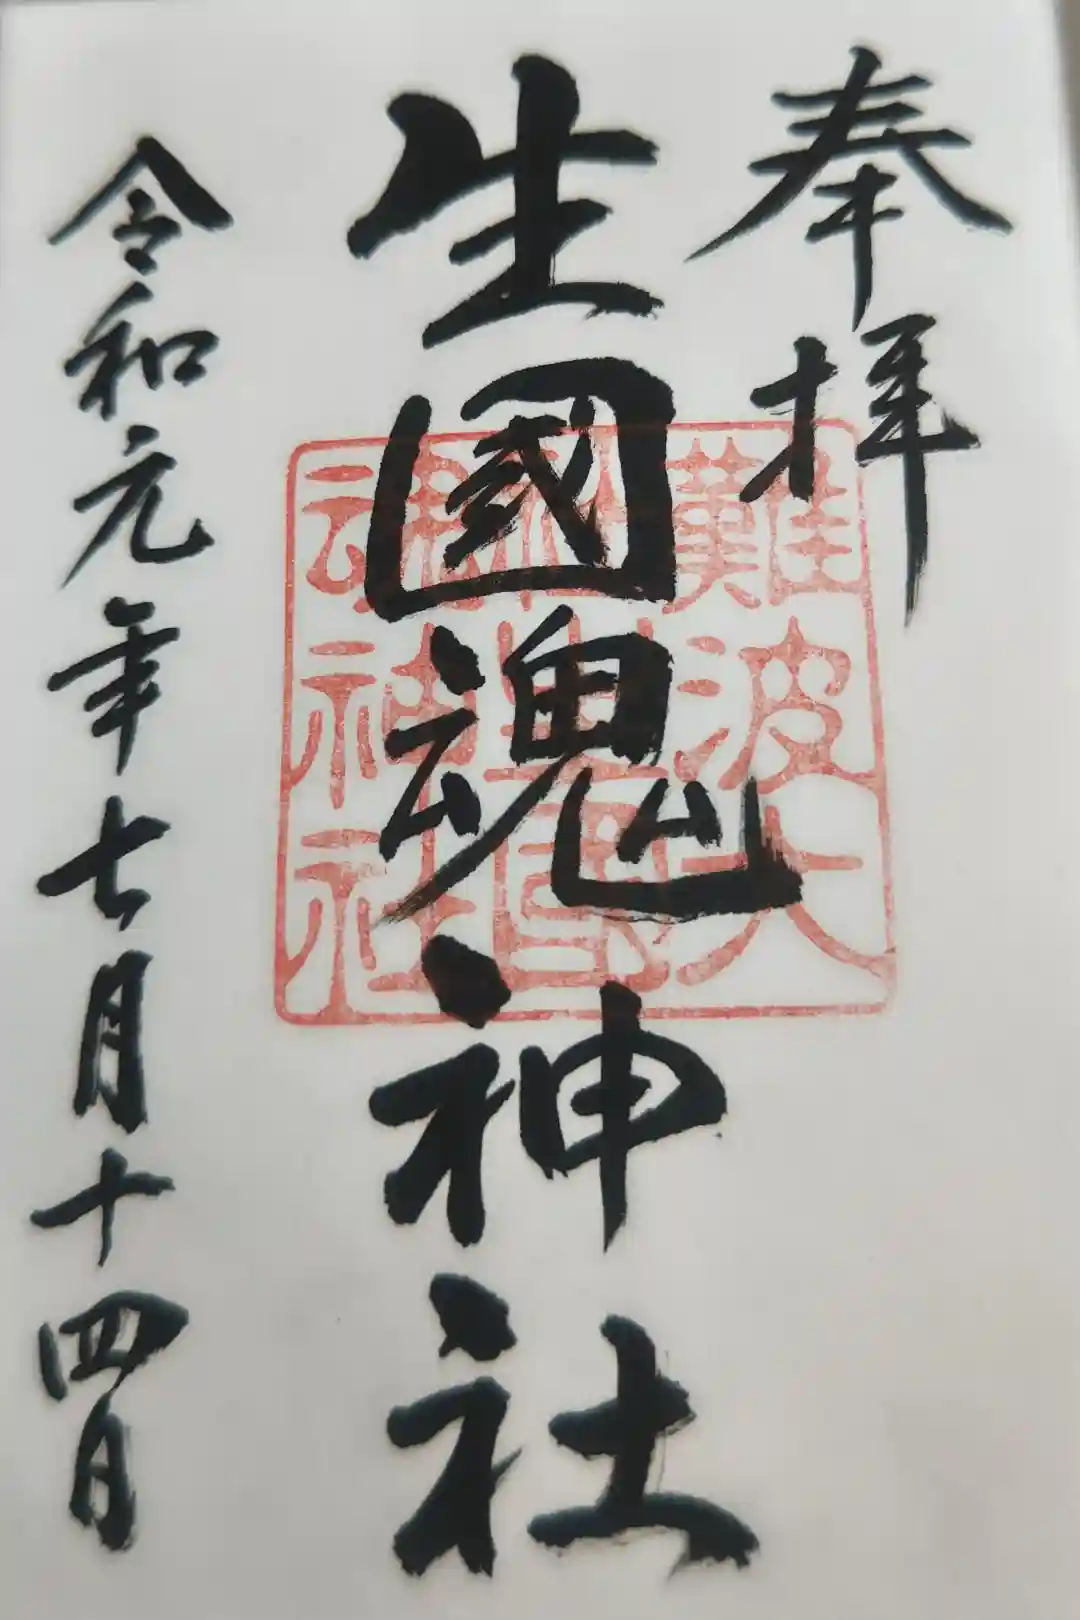 奉拝
生國魂神社
難波大社生國魂神社
令和元年七月十四日